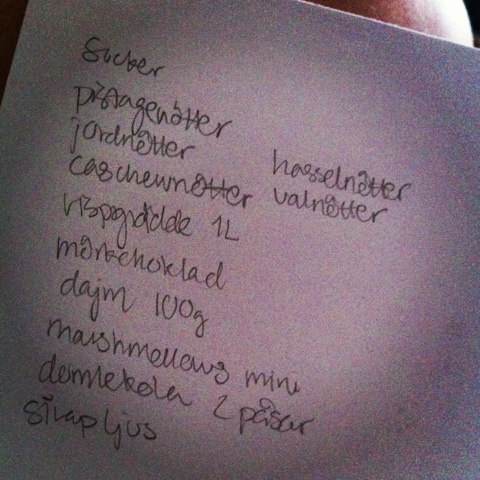 Socker
pistagenötter
jordnötter
caschewnötter
vispgrädde 1L
mörkchoklad
dajm 100g
marshmellows mini
dumlekola 2 påsar
sirap ljus
hasselnötter
valnötter